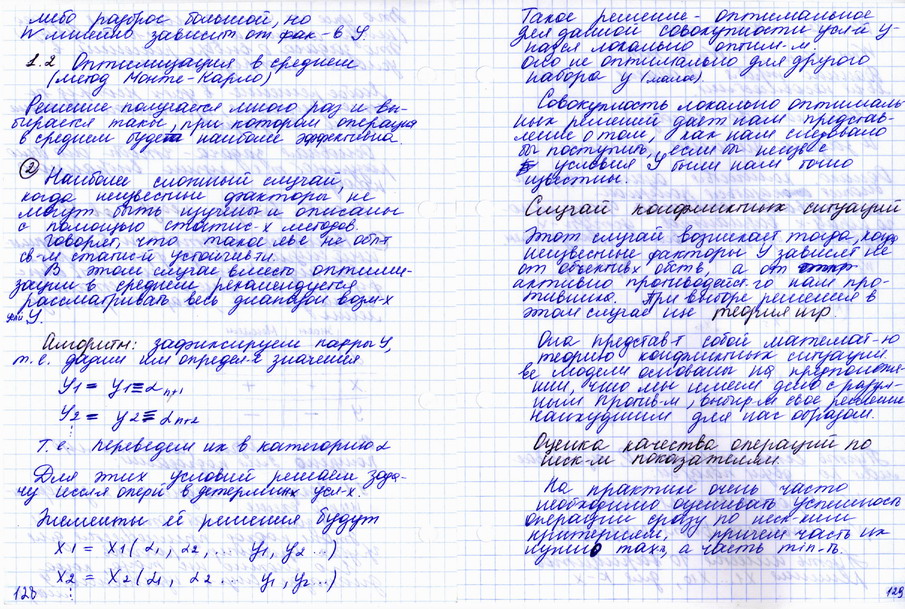 либо разброс большой, но
W именно зависит от фак-в У
1.2 Оптимизация в среднем
(метод Монте-Карло)
Решение получается много раз и вы-
бирается такое, при котором операция
в среднем будет наиболее эффективна.
② Наиболее сложный случай,
когда неизвестные факторы не
могут быть изучены и описаны
с помощью статис-х методов.
Говорят, что такое явл-е не
св-м статис-й устойчив-ти
В этом случае вместо оптими-
зации в среднем рекомендуется
рассматривать весь диапазон возм-х
У.
Алгоритм: зафиксируем пар-ры У,
т.е. дадим им определ-е значения
У1 = y1 ≡ α n+1
У2 = y2 ≡ α n+2
т.е. переведем их в категорию α
Для этих условий решаем зада-
чу иссл-я опер-й в детермин-х усл-х.
Элементы её решения будут
X1 = X1 (α1, α2, .... y1, y2 ...)
X2 = X2 (α1, α2 ... y1, y2 ...)
128
Такое решение - оптимальное
для данной совокупности усл-й у-
назыв-ся локально оптим-м.
Оно не оптимально для другого
набора у (мало).
Совокупность локально оптималь-
ных решений дает нам представ-
ление о том, как нам следовало
бы поступить, если бы неизв-е
условия У были нам точно
известны.
Случай конфликтных ситуаций
Этот случай возникает тогда, когда
неизвестные факторы У зависят не
от объективн. обст-в, а от
активно противодейст-го нам про-
тивника. При выборе решения в
этом случае исп теория игр.
Она представ-т собой математ-ю
теорию конфликтных ситуаций.
Её модели основаны на предположе-
нии, что мы имеем дело с разум-
ным против-м, выбир-м свое решение
наихудшим для нас образом.
Оценка качества операций по
неск-м показателям.
На практике очень часто
необходимо оценивать успешность
операции сразу по неск-ким
критериям, причем часть их
нужно max, а часть min-ть.
129